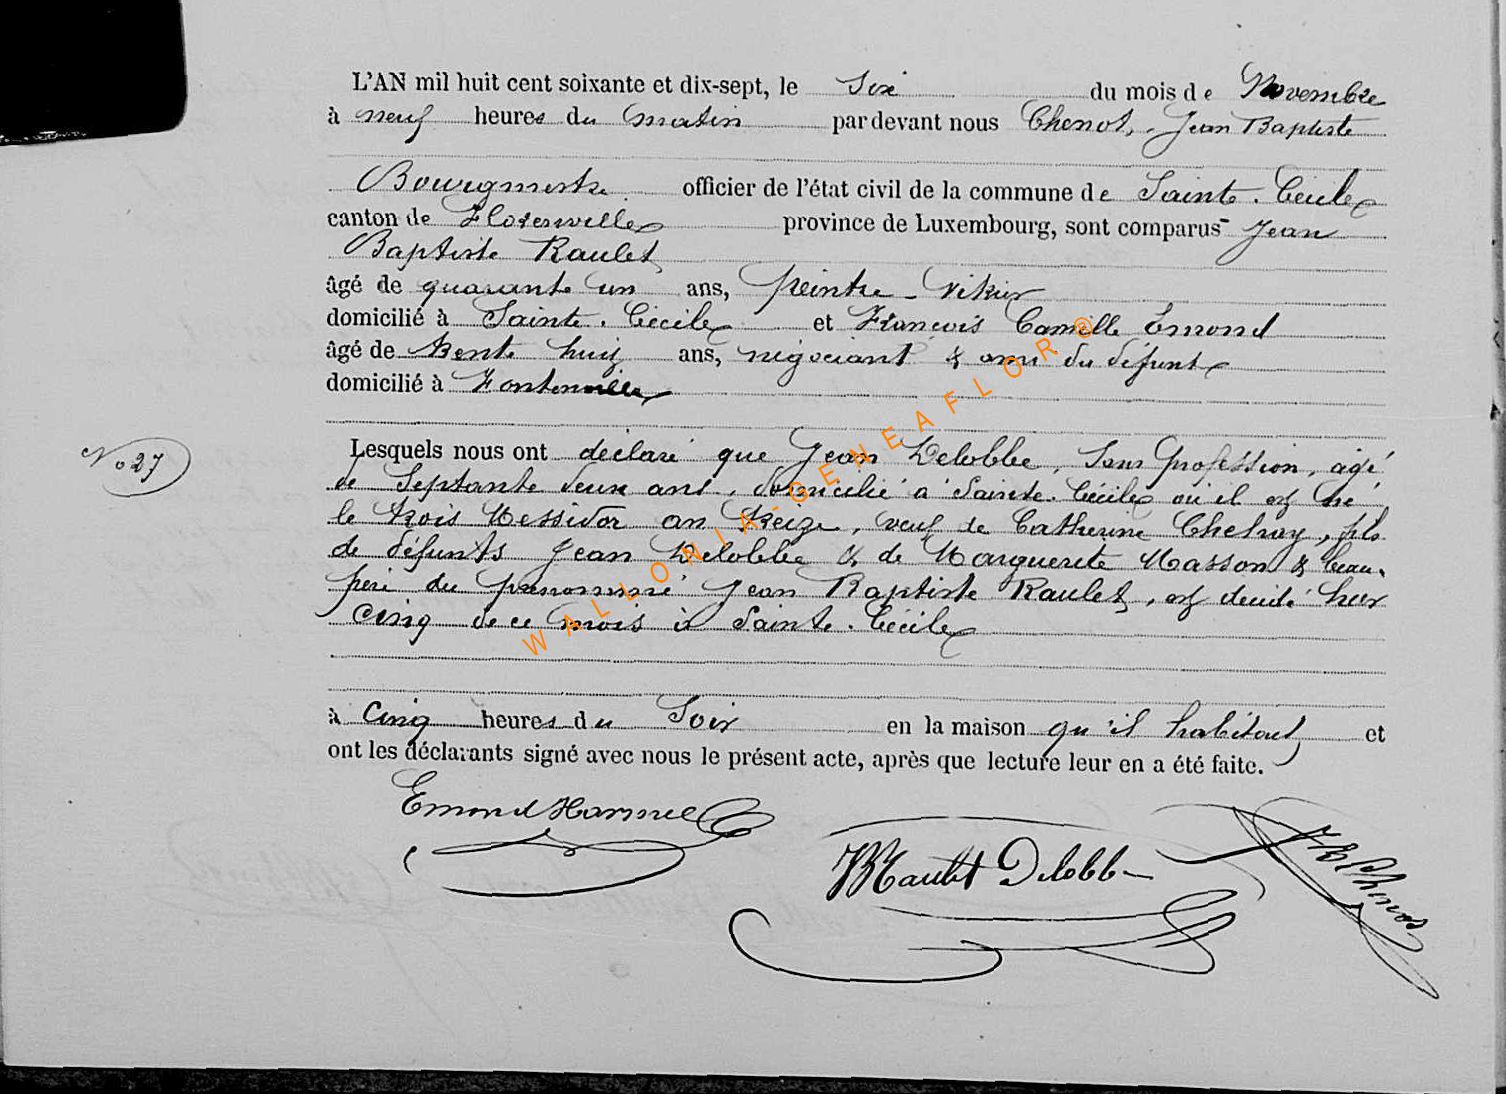 L'AN mil huit cent soixante et dix-sept, le Six du mois de Novembre
à neuf heures du matin par devant nous Chenot, Jean Baptiste
Bourgmestre officier de l'état civil de la commune de Sainte-Cécile
canton de Florenville province de Luxembourg, sont comparus Jean
Baptiste Raulet
âgé de quarante un ans, peintre-vitrier
domicilié à Sainte-Cécile et François Camille Émond
âgé de trente huit ans, négociant & ami du défunt
domicilié à Fontenoille
N° 27
Lesquels nous ont déclaré que Jean Delobbe, Sans Profession, agé
de Septante deux ans, domicilié à Sainte-Cécile où il est né
le trois Messidor an treize, veuf de Catherine , fils
de défunts Jean Delobbe & de Marguerite Masson & beau-
père du prénommé Jean Baptiste Raulet, est décédé hier
cinq de ce mois à Sainte-Cécile
à Cinq heures du Soir en la maison qu'il habitait et
ont les déclarants signé avec nous le présent acte, après que lecture leur en a été faite.
Emond Harmel
JBRaulet Delobbe
JB Chenot
WALLONIA-GENEAFLOR®